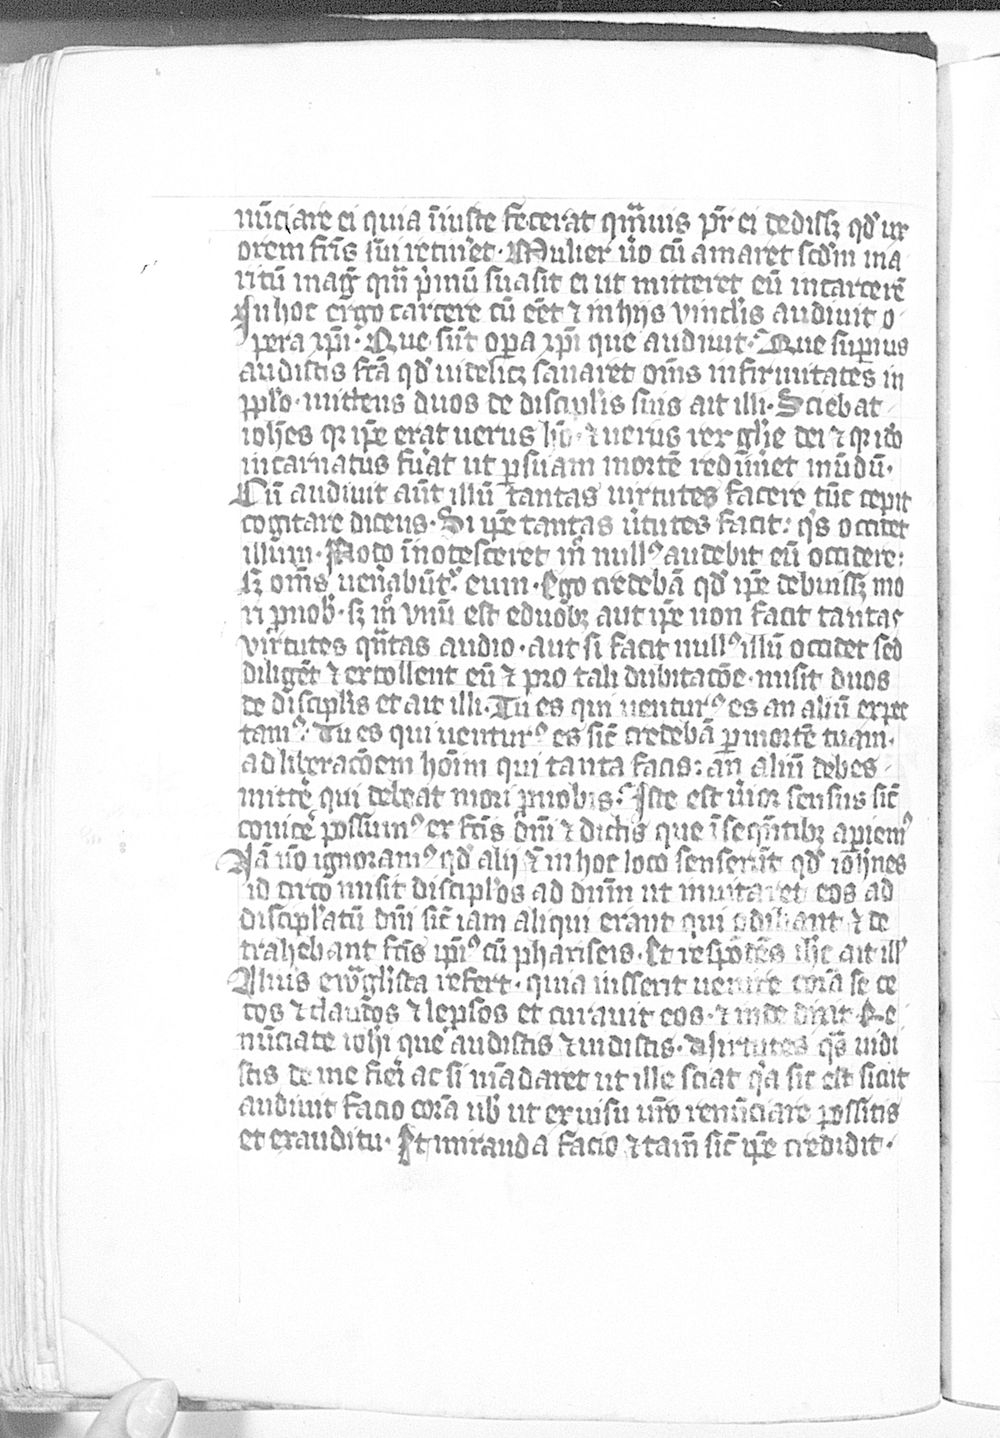 nūciare ei quia īiuste fecerat qm̄uis pr̄ ei dedissꝫ qd' ux
orem fr̄is sui retin'et · Mulier ū'o cū amaret scd'm ma
ritū mag̃ qm̄ p'mū suasit ei ut mitteret eū incarcerē
In hoc ergo carcere cū eēt ⁊ in hijs vinclis audiuit o
pera xp̄i · Que sūt oꝑa xp̄i que audiuit · Que suꝑius
audistis fcā qd' uidelicꝫ sanaret om̄s infirmitates in
ppl'o · mittens duos de discipl'is suis ait illi · Sciebat
ioh̄es qꝛ ip̄e erat uerus hō · ⁊ uerus rex gl'ie dei ⁊ qꝛ ido
incarnatus fu'at ut ꝑ suam mortē redim'et mūdū ·
Cū audiuit aūt illū tantas uirtutes facere tūc cepit
cogitare dicens · Si ip̄e tantas u'tutes facit : q's occidet
illum · Modo īnotesceret m̄ nullꝰ audebit eū occidere :
sꝫ om̄s uen'abūt' eum · Ego credebā qd' ip̄e debuissꝫ mo
ri ꝓ nob' · sꝫ m̄ vnū est eduobꝫ aut ip̄e non facit tantas
virtutes qn̄tas audio · aut si facit nullꝰ illū occidet sed
diligēt ⁊ extollent eū ⁊ pro tali dubitacōe · misit duos
de discipl'is et ait illi · Tu es qui uenturꝰ es an aliū expec
tamꝰ · Tu es qui uenturꝰ es sic̄ credebā ꝑ mortē tuam ·
ad liberacōem hoīm qui tanta facis : an aliū debes
mitte' qui debeat mori ꝓ nobis · Iste est u'ior sensus sic̄
conice' possumꝰ ex fc̄is dn̄i ⁊ dictis que īseqn̄tibꝫ aꝑiemꝰ
Nā nō ignoramꝰ qd' alij ⁊ in hoc loco senserūt qd' ioh̄nes
id circo misit discipl'os ad dn̄m ut inuitaret eos ad
discipl'atū dn̄i sic̄ iam aliqui erant qui odibant ⁊ de
trahebant fc̄is ip̄iꝰ cū phariseis · Et respōdēs ih̄c ait ill'
Alius ewāglista refert · quia iusserit uenire corā se ce
cos ⁊ claudos ⁊ leprosos et curauit eos · ⁊ inde dixit · Re
nūciate ioh'i que audistis ⁊ uidistis · Uirtutes q̄s uidi
stis de me fieri ac si mādaret ut ille sciat q'a sic est sicut
audiuit facio corā uob' ut ex uisu ur̄o renūciare possitis
et exauditu · Et miranda facio ⁊ tam̄ sic̄ ip̄e credidit ·